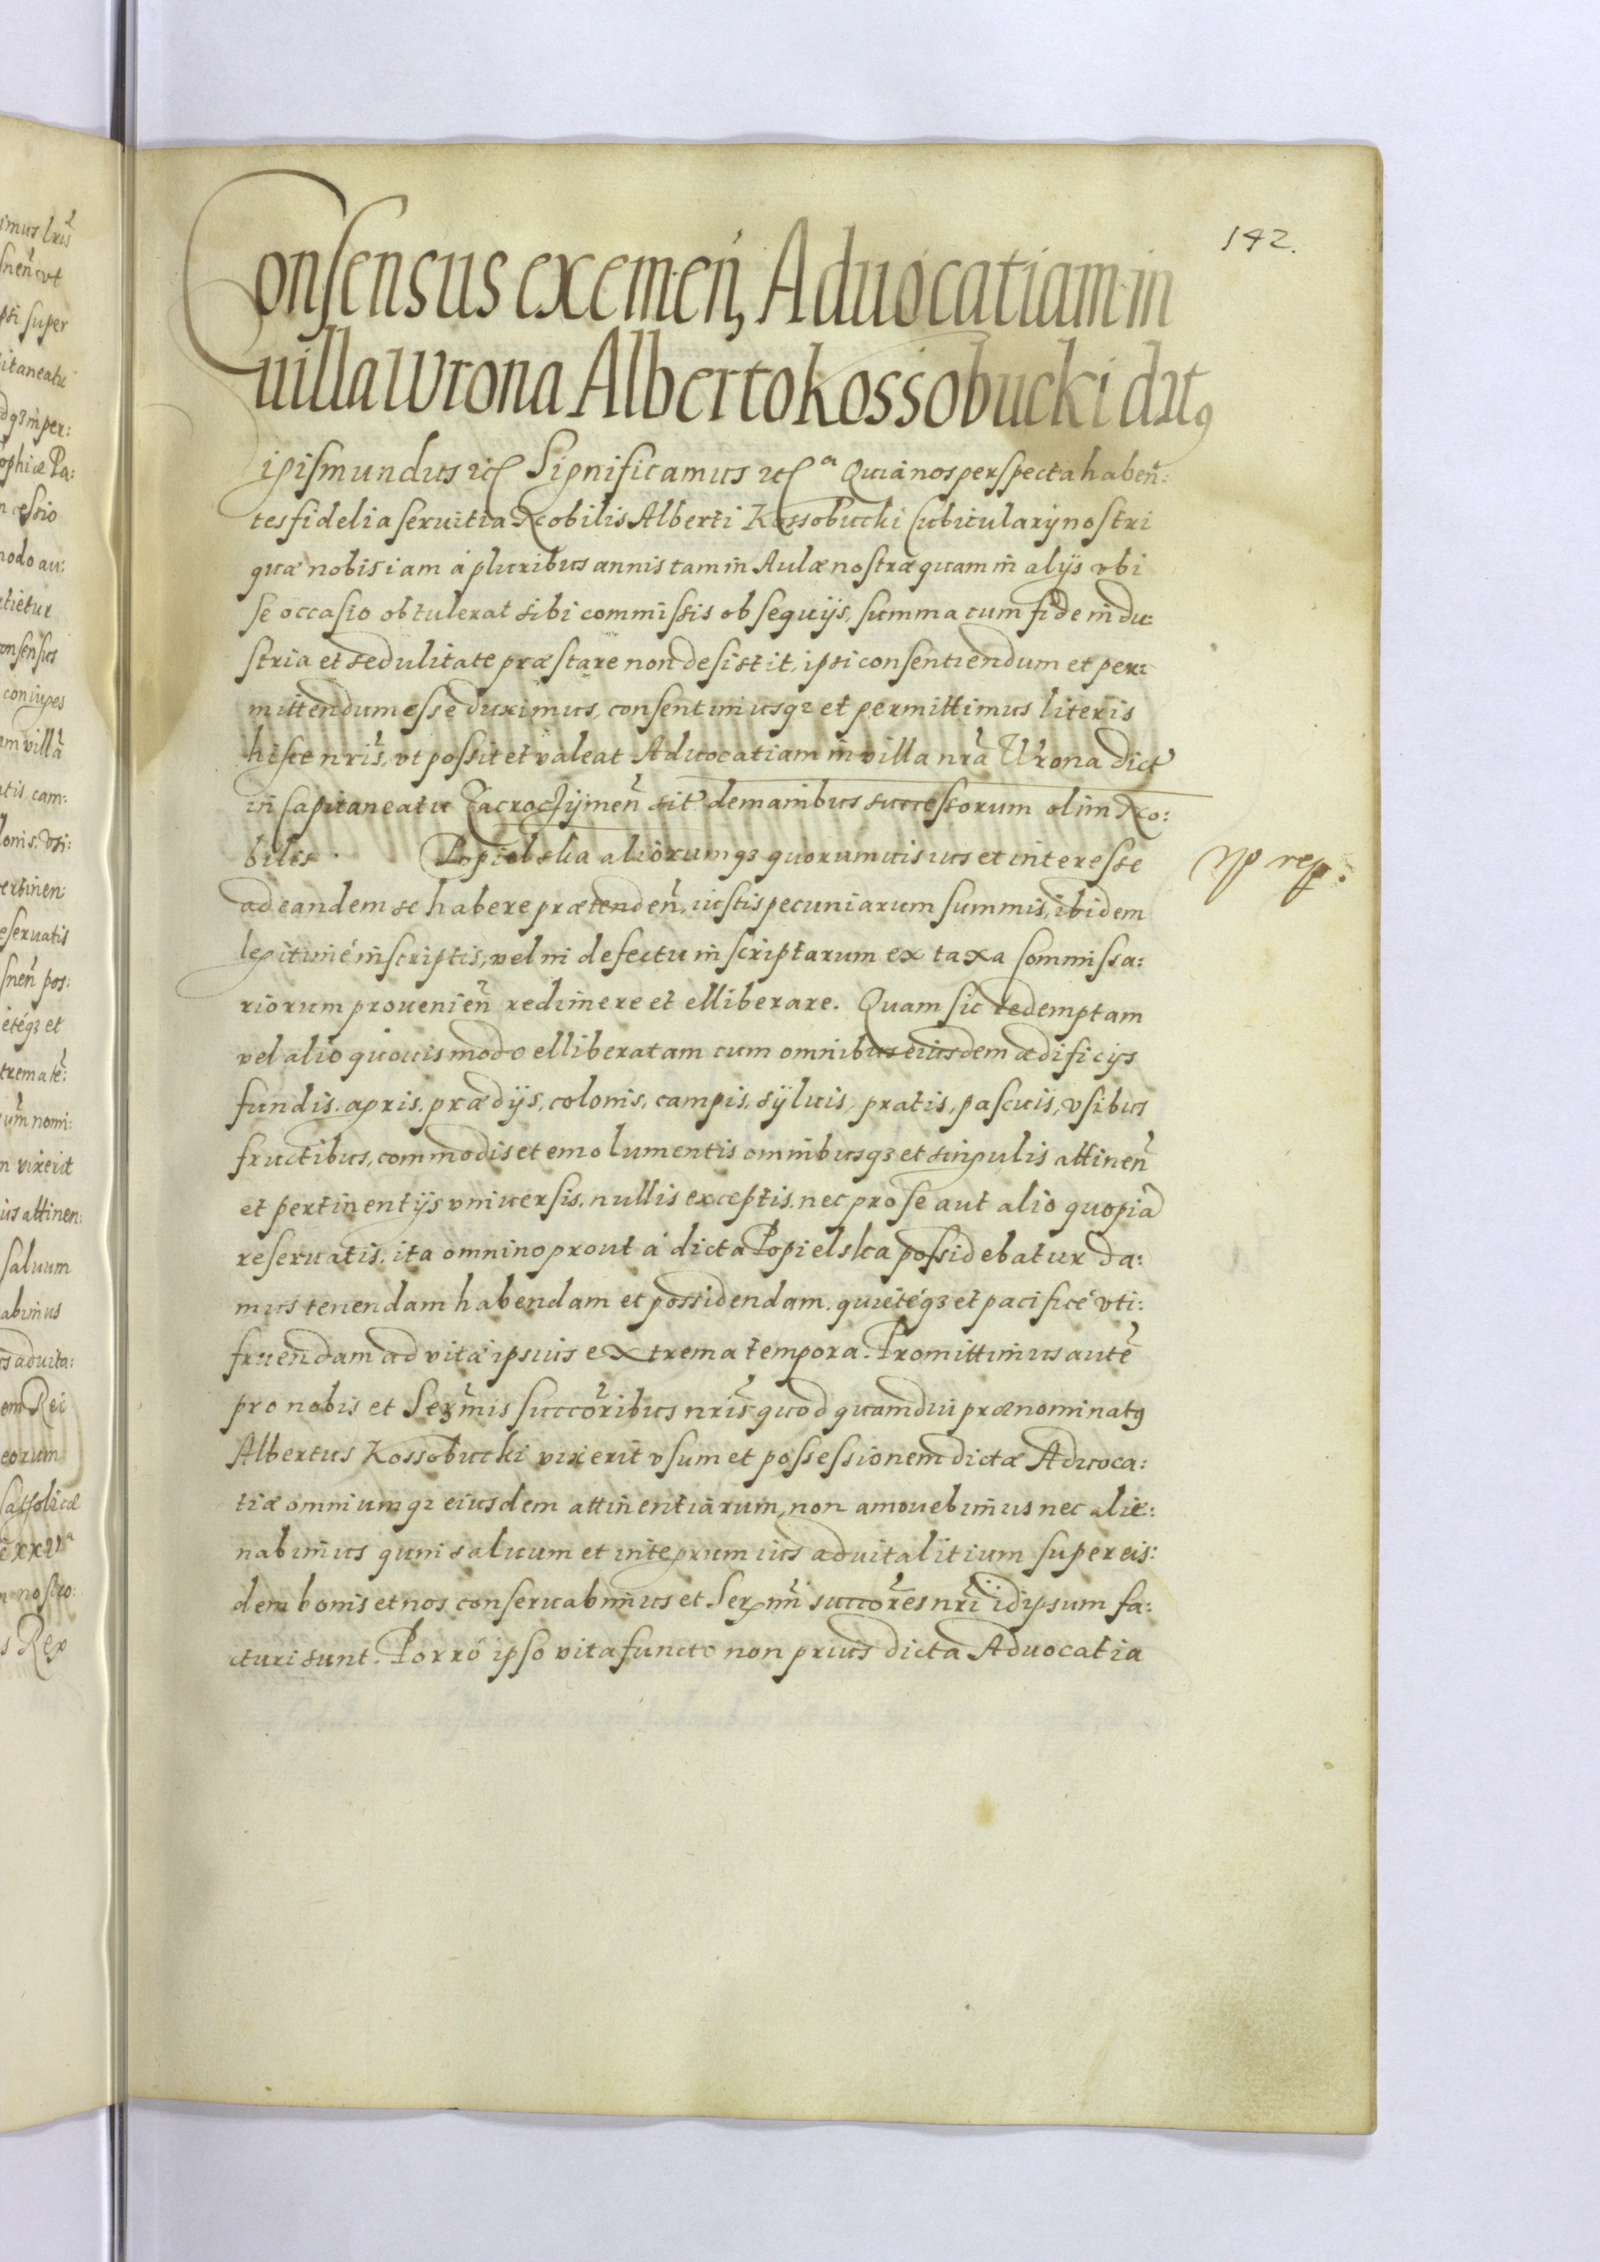 142.
Consensus exemeñ, Aduocatiam in
uilla Wrona Alberto Kossobucki datus
Sigismundus etc Significamus etc a Quia nos perspecta habeñ:
tes fidelia seruitia Nobilis Alberti Kossobucki Cubicularij nostri
quæ nobis iam à pluribus annis tam in Aulæ nostræ quam in alijs vbi
se occasio obtulerat sibi commissis obsequijs, summa cum fide indu:
stria et sedulitate præstare non desistit, ipsi consentiendum et per:
mittendum esse duximus, consentimusqз et permittimus literis
hisce nris̃, vt possit et valeat Aduocatiam in villa nrã Wrona dict̃
in Capitaneatu Zacroczÿmeñ sit̃ de manibus successorum olim No:
bilis . Popielska aliorumqз quorumuis ius et interesse
ad eandem se habere prætendeñ, iustis pecuniarum summis, ibidem
legitimé inscriptis, vel in defectu inscriptarum ex taxa Commissa:
riorum prouenieñ redimere et elliberare. Quam sic redemptam
vel alio quouis modo elliberatam cum omnibus eiusdem ædificijs
fundis, agris, prædijs, colonis, campis, sÿluis, pratis, pascuis, vsibus
fructibus, commodis et emolumentis omnibusqз et singulis attineñ
et pertinentijs vniuersis, nullis exceptis, nec pro se aut alio quopiã
reseruatis, ita omnino prout à dicta Popielska possidebatur da:
mus tenendam habendam et possidendam, quietéqз et pacificé vti:
fruendam ad vitæ ipsuis extrema tempora. Promittimus autẽ
pro nobis et Serm̃is succor̃ibus nris̃ quod quamdiu prænominatus
Albertus Kossobucki vixerit vsum et possessionem dictæ Aduoca:
tiæ omniumqз eiusdem attinentiarum, non amouebimus nec alie:
nabimus quin saluum et integrum ius aduitalitium super eis:
dem bonis et nos conseruabimus et Serm̃i succor̃es nri̇̃ idipsum fa:
cturi sunt. Porró ipso vita functo non prius dicta Aduocatia